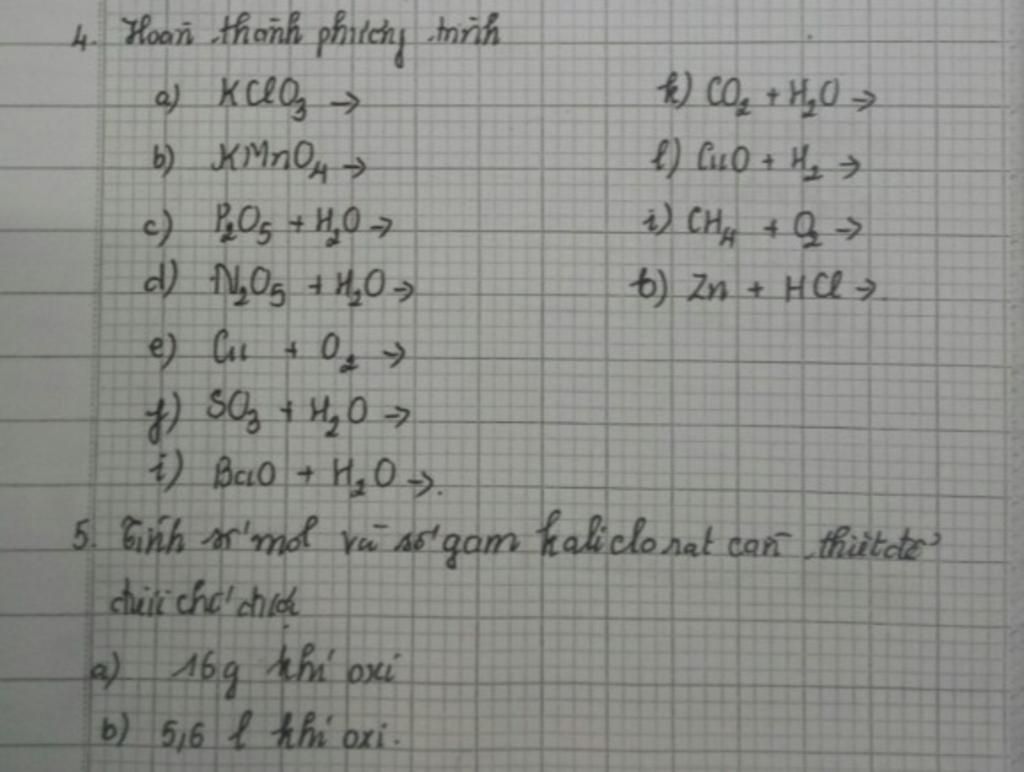 4. Hoàn thành phương trình
a) KClO₃ →
b) KMnO₄ →
c) P₂O₅ + H₂O →
d) N₂O₅ + H₂O →
e) Cu + O₂ →
f) SO₃ + H₂O →
i) BaO + H₂O →.
k) CO₂ + H₂O →
l) CuO + H₂ →
i) CH₄ + O₂ →
b) Zn + HCl →.
5. Tính số mol và số gam kaliclorat cần thiết để
điều chế được
a) 16g khí oxi
b) 5,6 l khí oxi.